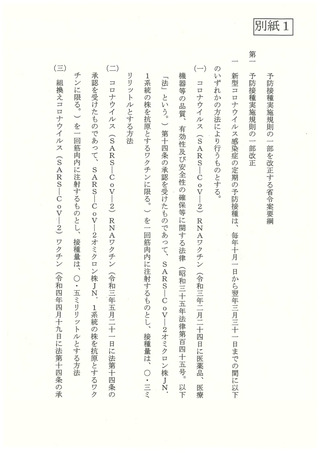 別紙1
予防接種実施規則の一部を改正する省令案要綱
第一 予防接種実施規則の一部改正
一 新型コロナウイルス感染症の定期の予防接種は、毎年十月一日から翌年三月三十一日までの間に以下
のいずれかの方法により行うものとする。
(一) コロナウイルス(SARS―CoV―2)RNAワクチン(令和三年二月二十四日に医薬品、医療
機器等の品質、有効性及び安全性の確保等に関する法律(昭和三十五年法律第百四十五号。以下
「法」という。)第十四条の承認を受けたものであって、SARS―CoV―2オミクロン株JN.
1系統の株を抗原とするワクチンに限る。)を一回筋肉内に注射するものとし、接種量は、〇・三ミ
リリットルとする方法
(二) コロナウイルス(SARS―CoV―2)RNAワクチン(令和三年五月二十一日に法第十四条の
承認を受けたものであって、SARS―CoV―2オミクロン株JN.1系統の株を抗原とするワク
チンに限る。)を一回筋肉内に注射するものとし、接種量は、〇・五ミリリットルとする方法
(三) 組換えコロナウイルス(SARS―CoV―2)ワクチン(令和四年四月十九日に法第十四条の承